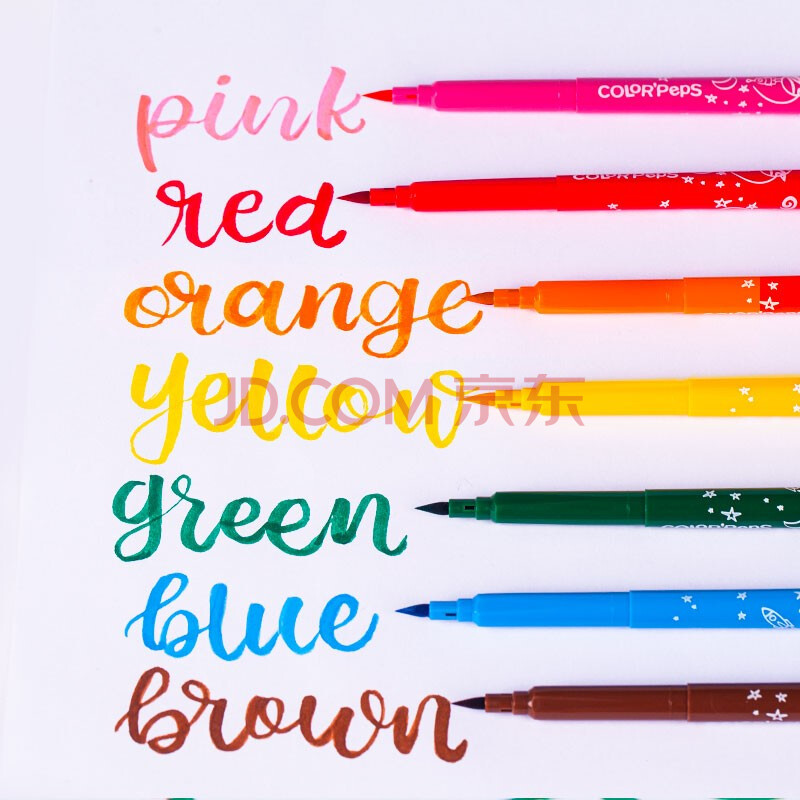 pink
COLOR'PEPS
red
COLOR'PEPS
orange
yellow
JD.COM 京东
green
COLOR'PEPS
blue
brown